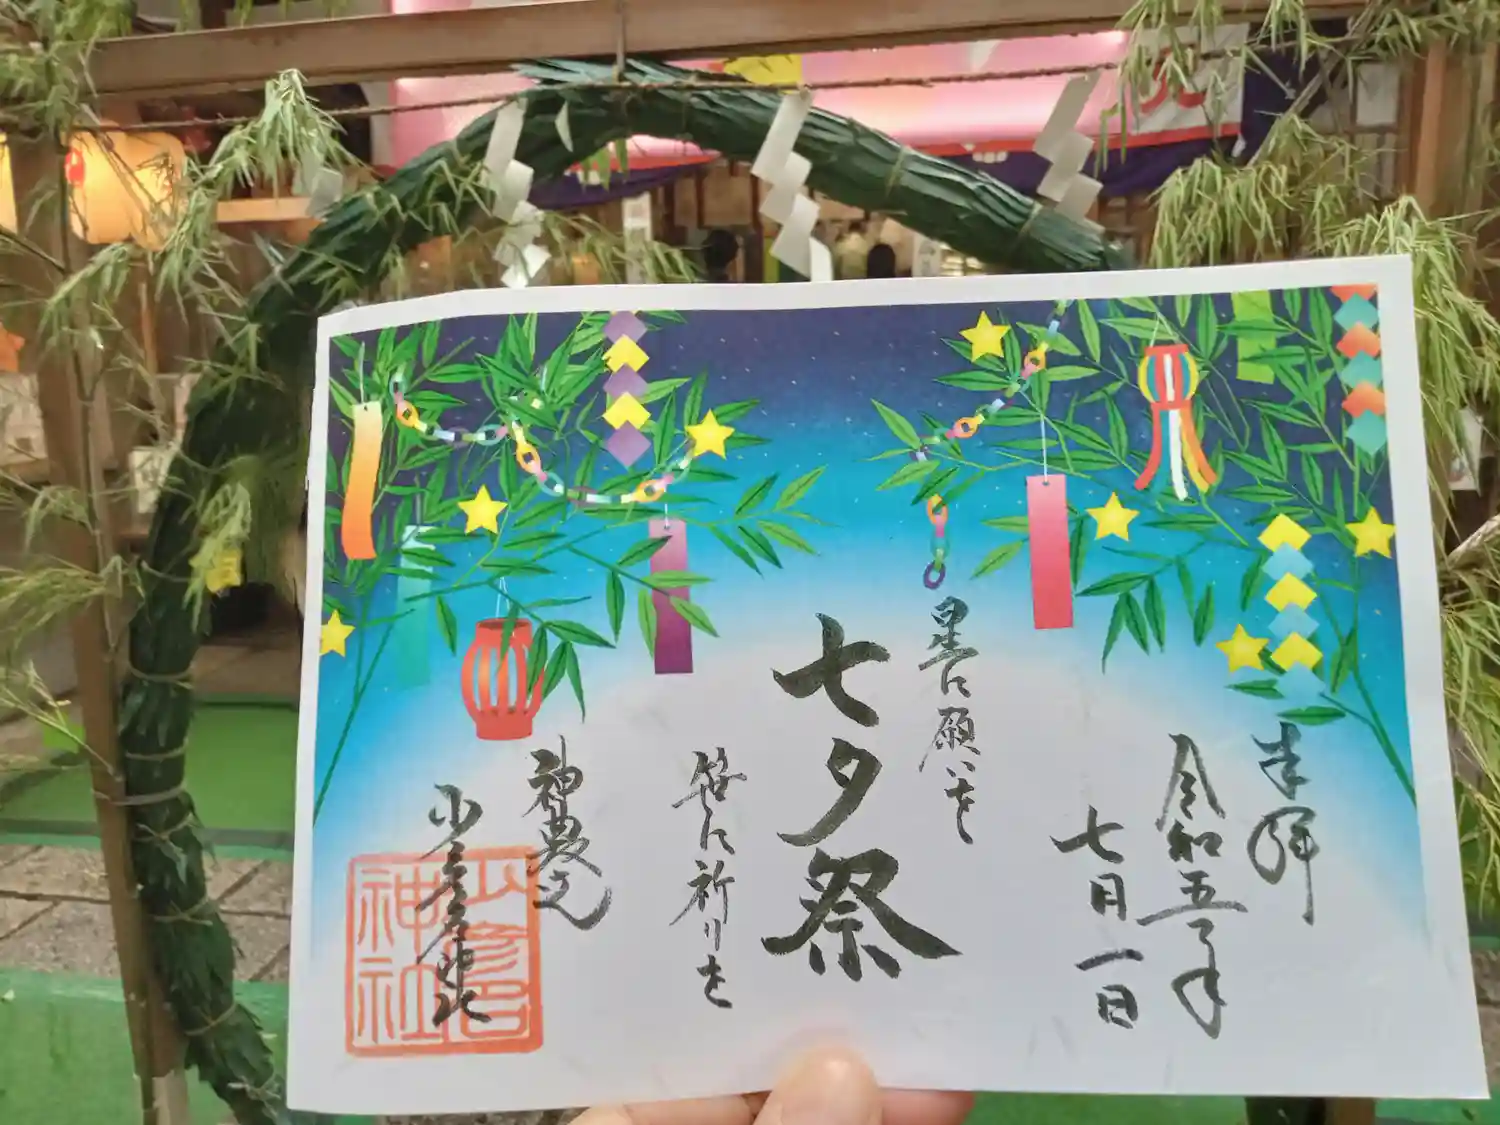 奉拝
令和五年
七月一日
星に願いを
七夕祭
笹に祈りを
神農さん
少彦名神社
少彦名神社